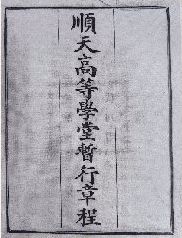 順天高等學堂暫行章程